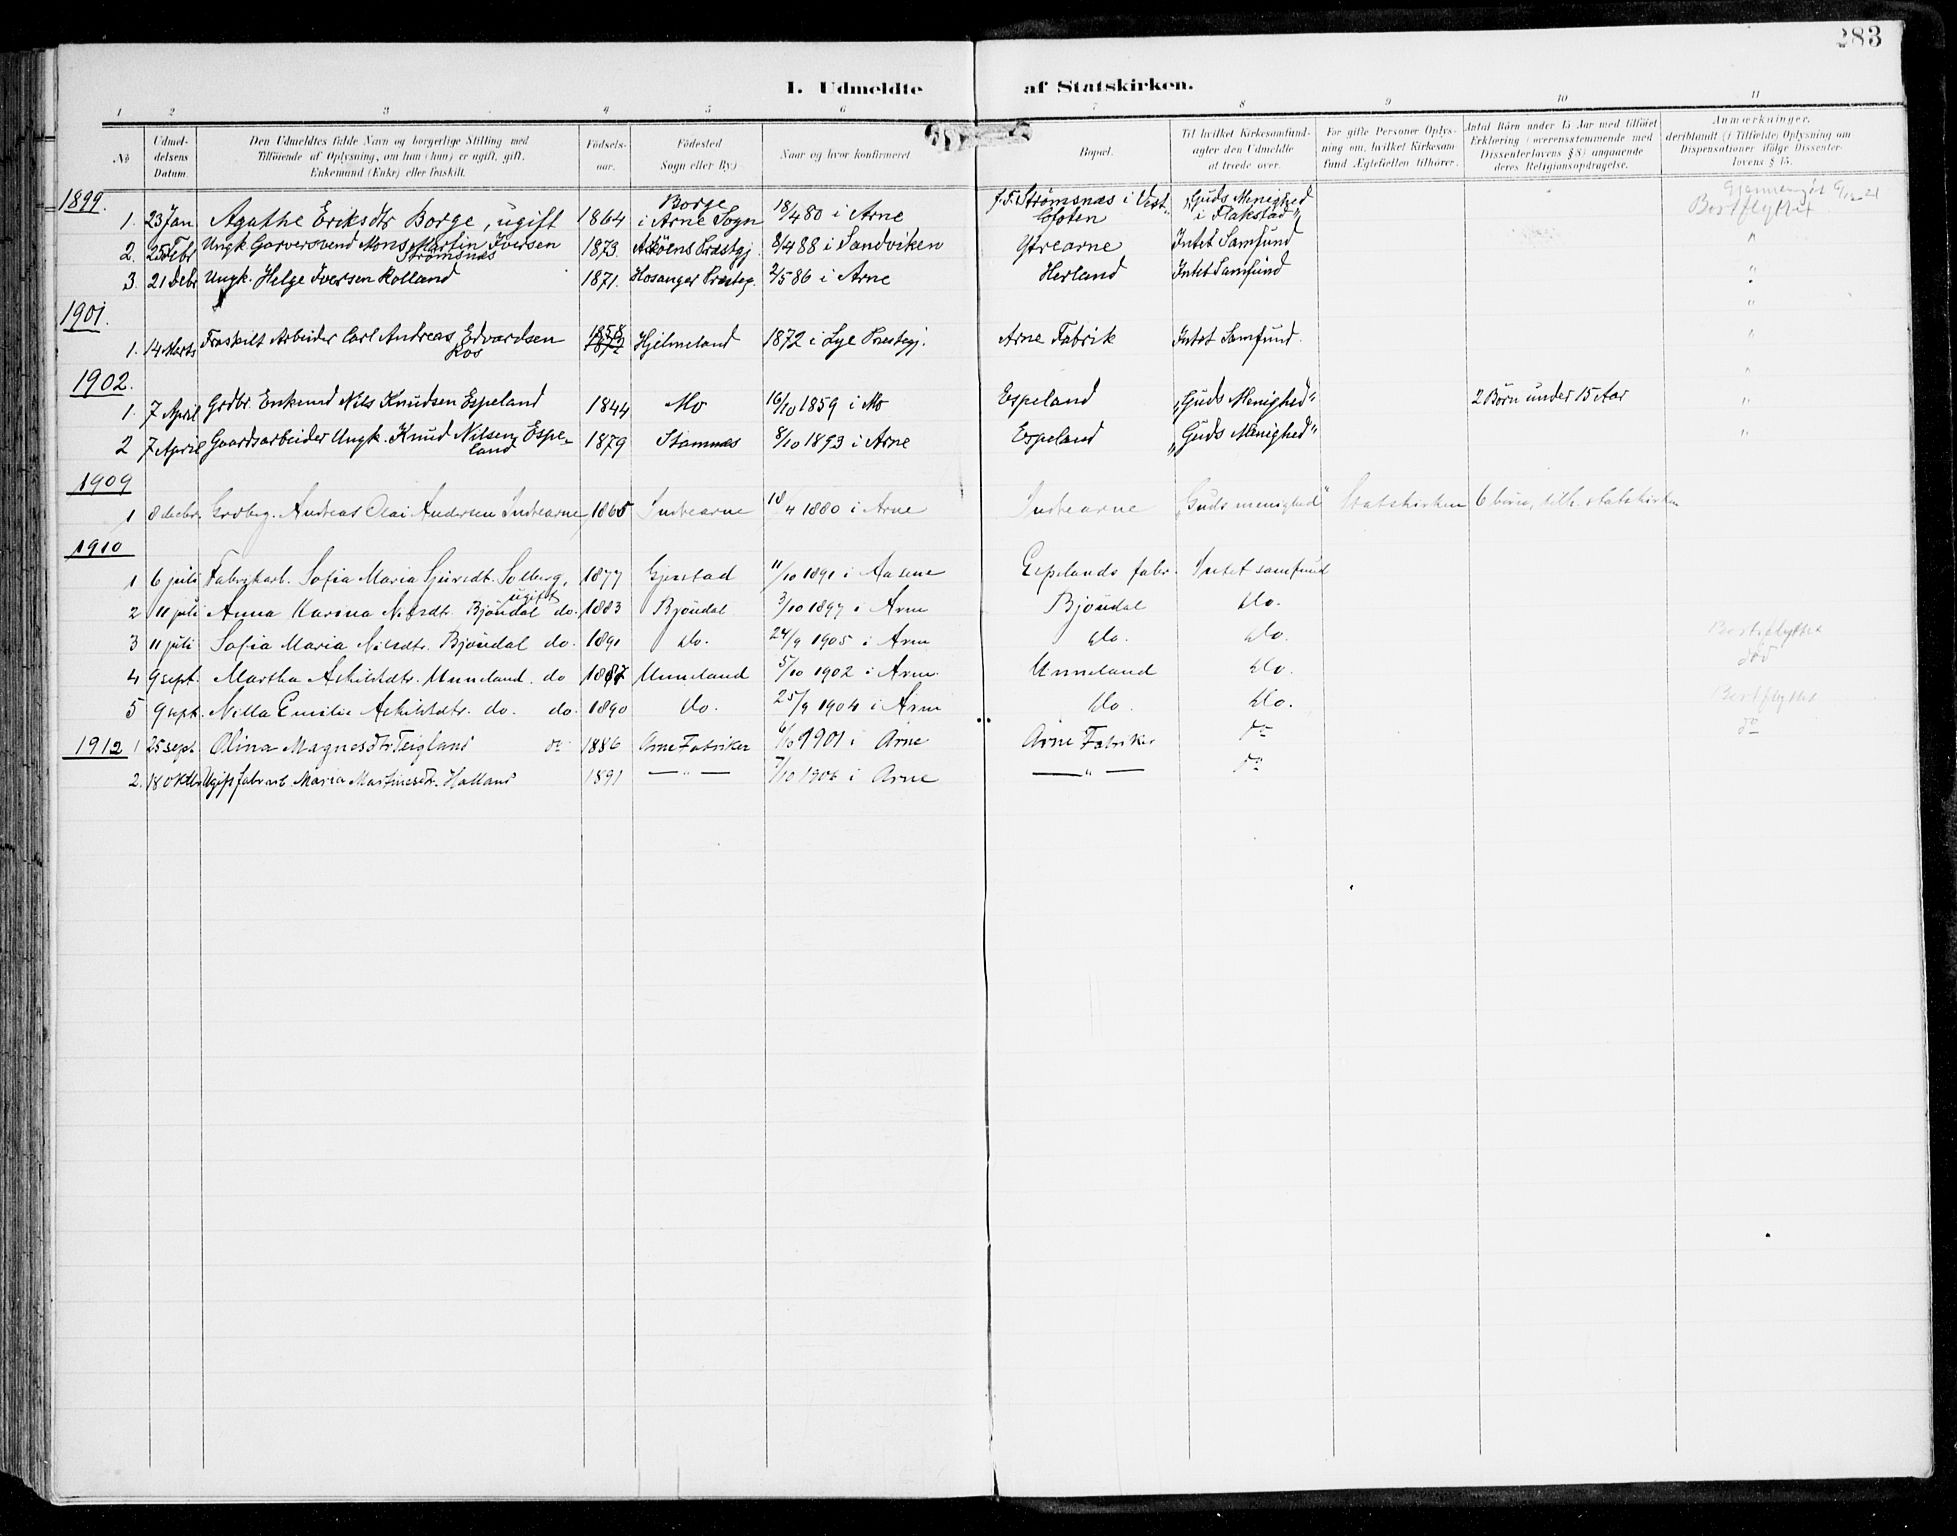 283
I. Udmeldte af Statskirken.
1 2 3 4 5 6 7 8 9 10 11
No
Udmel-
delsens
Datum.
Den Udmeldtes fulde Navn og borgerlige Stilling med
Tilföiende af Oplysning, om han (hun) er ugift, gift,
Enkemand (Enke) eller fraskilt.
Födsels-
aar.
Födested
Sogn eller By.)
Naar og hvor konfirmeret
Bopæl.
Til hvilket Kirkesamfund
agter den Udmeldte
at træde over.
For gifte Personer Oplys-
ning om, hvilket Kirkesam-
fund Ægtefællen tilhörer.
Antal Börn under 15 Aar med tilföiet
Erklæring (overensstemmende med
Dissenterlovens § 8) angaaende
deres Religionsopdragelse.
Anmærkninger,
deriblandt (i Tilfælde) Oplysning om
Dispensationer ifölge Dissenter-
lovens § 15.
1899.
1. 23 Jan Agathe Eriksdtr Borge, ugift 1864 Borge i Arne Sogn 18/4 80 i Arne f.T. Strömsnæs i Vest-Lofoten „Guds Menighed i Flakstad“ Bortflyttet
2. 25 Febr Ungk. Garversvend Mons Martin Iversen Strömsnæs 1873. Asköens Præstgj. 8/4 88 i Sandviken Ytrearne Intet Samfund "
3. 21 Debr Ungk. Helge Iversen Rolland 1871. Hosanger Præsteg. 2/5 86 i Arne Herland Intet Samfund "
1901.
1. 14 Marts Fraskilt Arbeider Carl Andreas Edvardsen Ros 1858 Hjelmeland 1872 i Lye Præstegj. Arne Fabrik Intet Samfund. "
1902.
1. 7 April Grdbr. Enkemd Nils Knudsen Espeland 1844 Mo 16/10 1859 i Mo Espeland „Guds Menighed“ 2 Börn under 15 Aar "
2 7 April Gaardsarbeider Ungk. Knud Nilsen Espeland 1879 Stamnæs 8/10 1893 i Arne Espeland „Guds Menighed“ "
1909
1 8 decbr. Grdbrg. Andreas Olai Andersen Indrearne 1865 Indrearne 18/4 1880 i Arne Indrearne „Guds menighed“ Statskirken 6 börn, tilh. statskirken
1910
1 6 juli Fabrikarb. Sofia Maria Sjursdt. Solberg, ugift 1877 Gjerstad 11/10 1891 i Aasene Espelands fabr. Intet samfund
2 11 juli Anna Karina Nilsdtr. Bjöndal do. 1883 Bjöndal 3/10 1897 i Arne Bjöndal do.
3 11 juli Sofia Maria Nilsdtr. Bjöndal do. 1891 do. 24/9 1905 i Arne do. do. Bortflyttet
4 9 sept. Martha Askildsdtr. Unneland. do 1887 Unneland 5/10 1902 i Arne. Unneland do.
5 9 sept. Nilla Emilie Askildsdtr. do. do. 1890 do. 25/9 1904 i Arne do. do. Bortflyttet
1912 1 25 sept Olina Magnesdtr Teigland do 1886 Arne Fabriker 6/10 1901 i Arne Arne Fabriker do do
2. 18 Oktbr Ugift fabr.arb. Maria Martinesdtr. Halland 1891 — " — 7/10 1906 i Arne — " — do